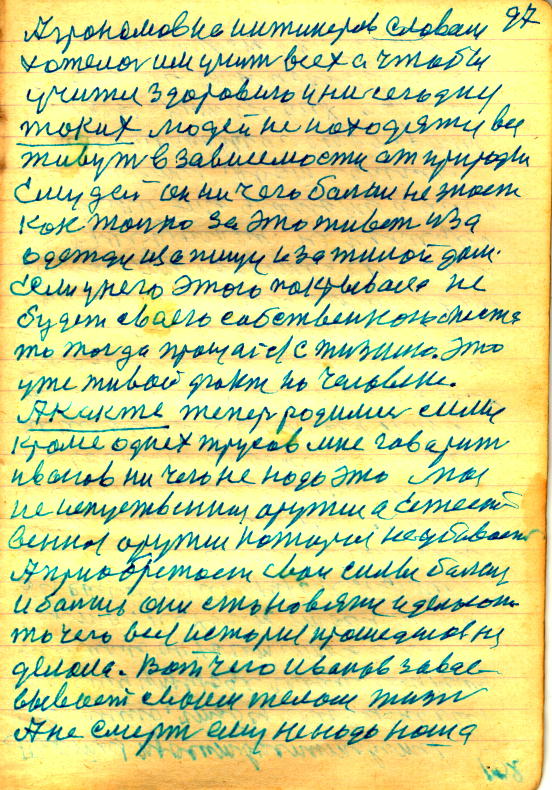 97
Агрономов на интинеров словам
хотелог им учит всех а чтобы
учити здоровию и ни сегодни
таких людей не находяти все
живут в зависемости от природы
Ему дей он ни чего больш не знает
как толко за это живет иза
одежди иза пищи иза жилой дом.
Если у него этого покрывала не
будет своего собственного места
то тогда прощайся с жизнию. Это
уже живой факт на человеке.
А как же тепер родилися силы
кроме однех трусов мне говарит
иванов ни чего не нода это мое
не искуственная оружия а Естест
венная оружия которыя не убивает
А приобретает свои силы больш
и больш они становяти и делают
то чего вся история прошедшая не
делала. Вот чего иванов завае
вывает своим телом жизн
А не смерт ему не нода наша